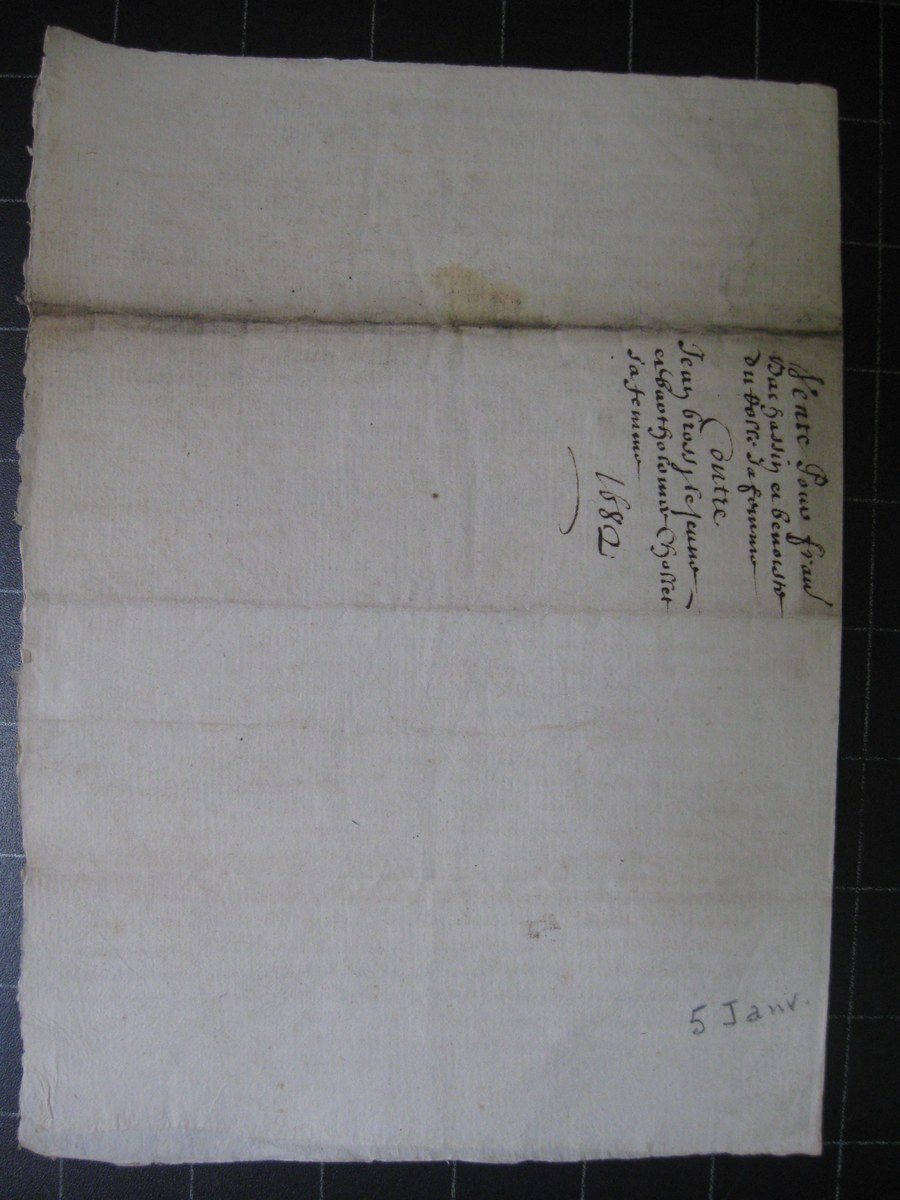 Vente Pour fran
Bachassin et benoiste
du Solle sa femme
Contre
Jean bross le Jeune
et bartholomie Chollet
sa femme
1682
5 Janv.